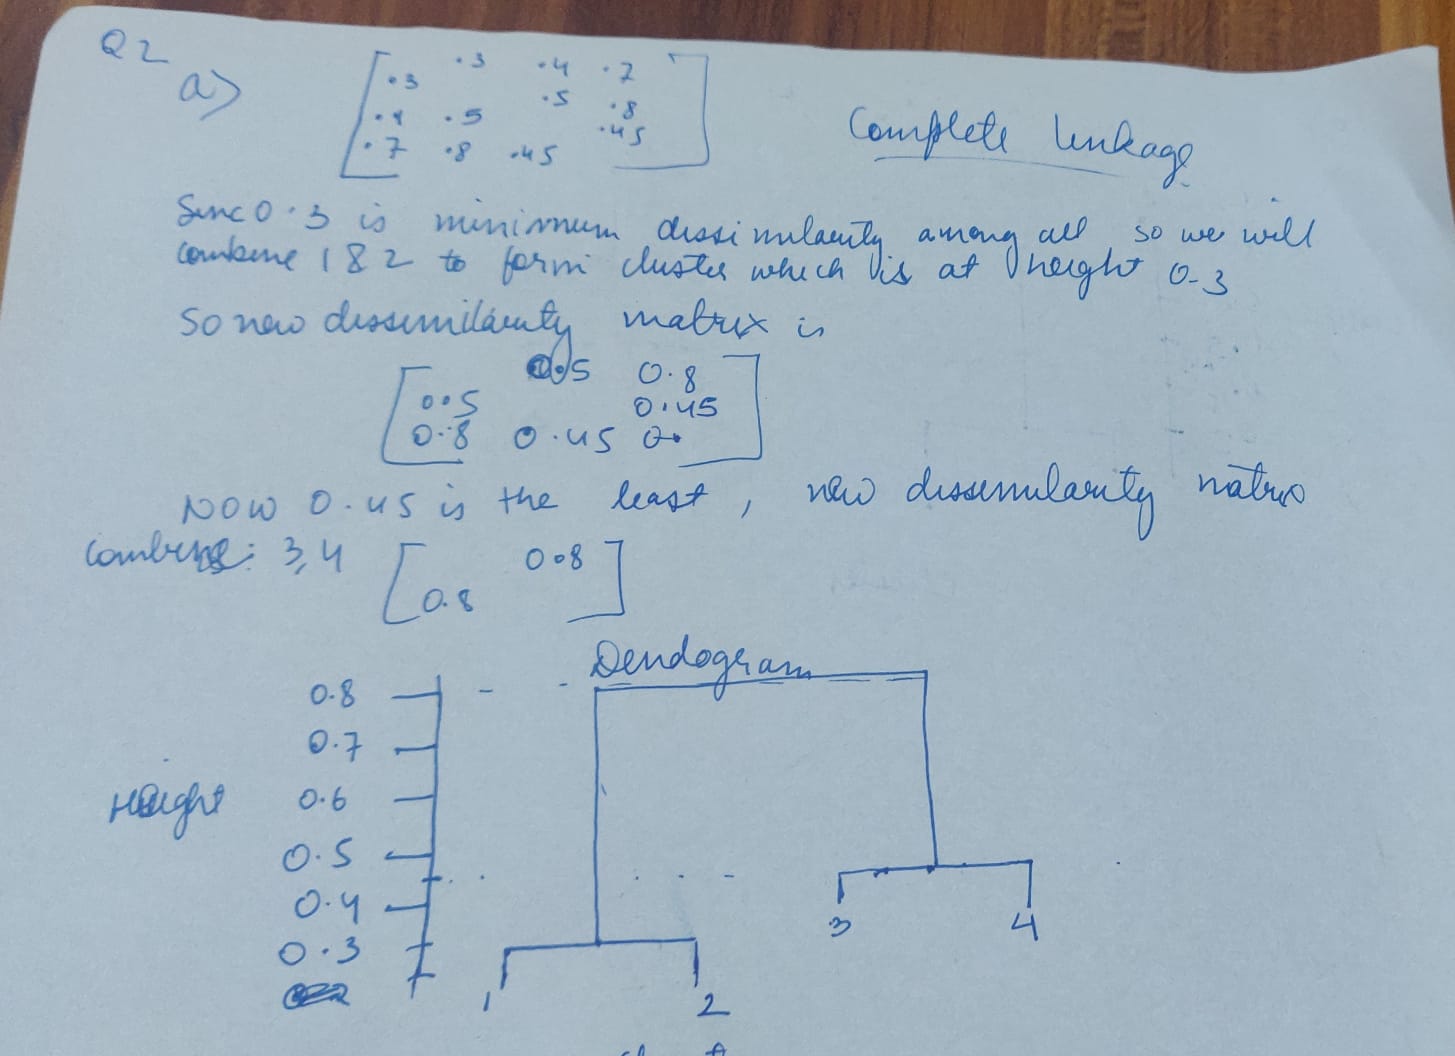 Q2
a)
.3 .4 .7
.3 .5 .8
.4 .5 .45
.7 .8 .45
Complete linkage
Sinc 0.3 is minimum dissimilarity among all, so we will
combine 1 & 2 to form cluster which is at height 0.3
So new dissimilarity matrix is
0.5 0.8
0.5 0.45
0.8 0.45 0.
Now 0.45 is the least, new dissimilarity matrix
Combine: 3,4
0.8
0.8
Dendogram
0.8
0.7
Height 0.6
0.5
0.4
0.3
3 4
1 2